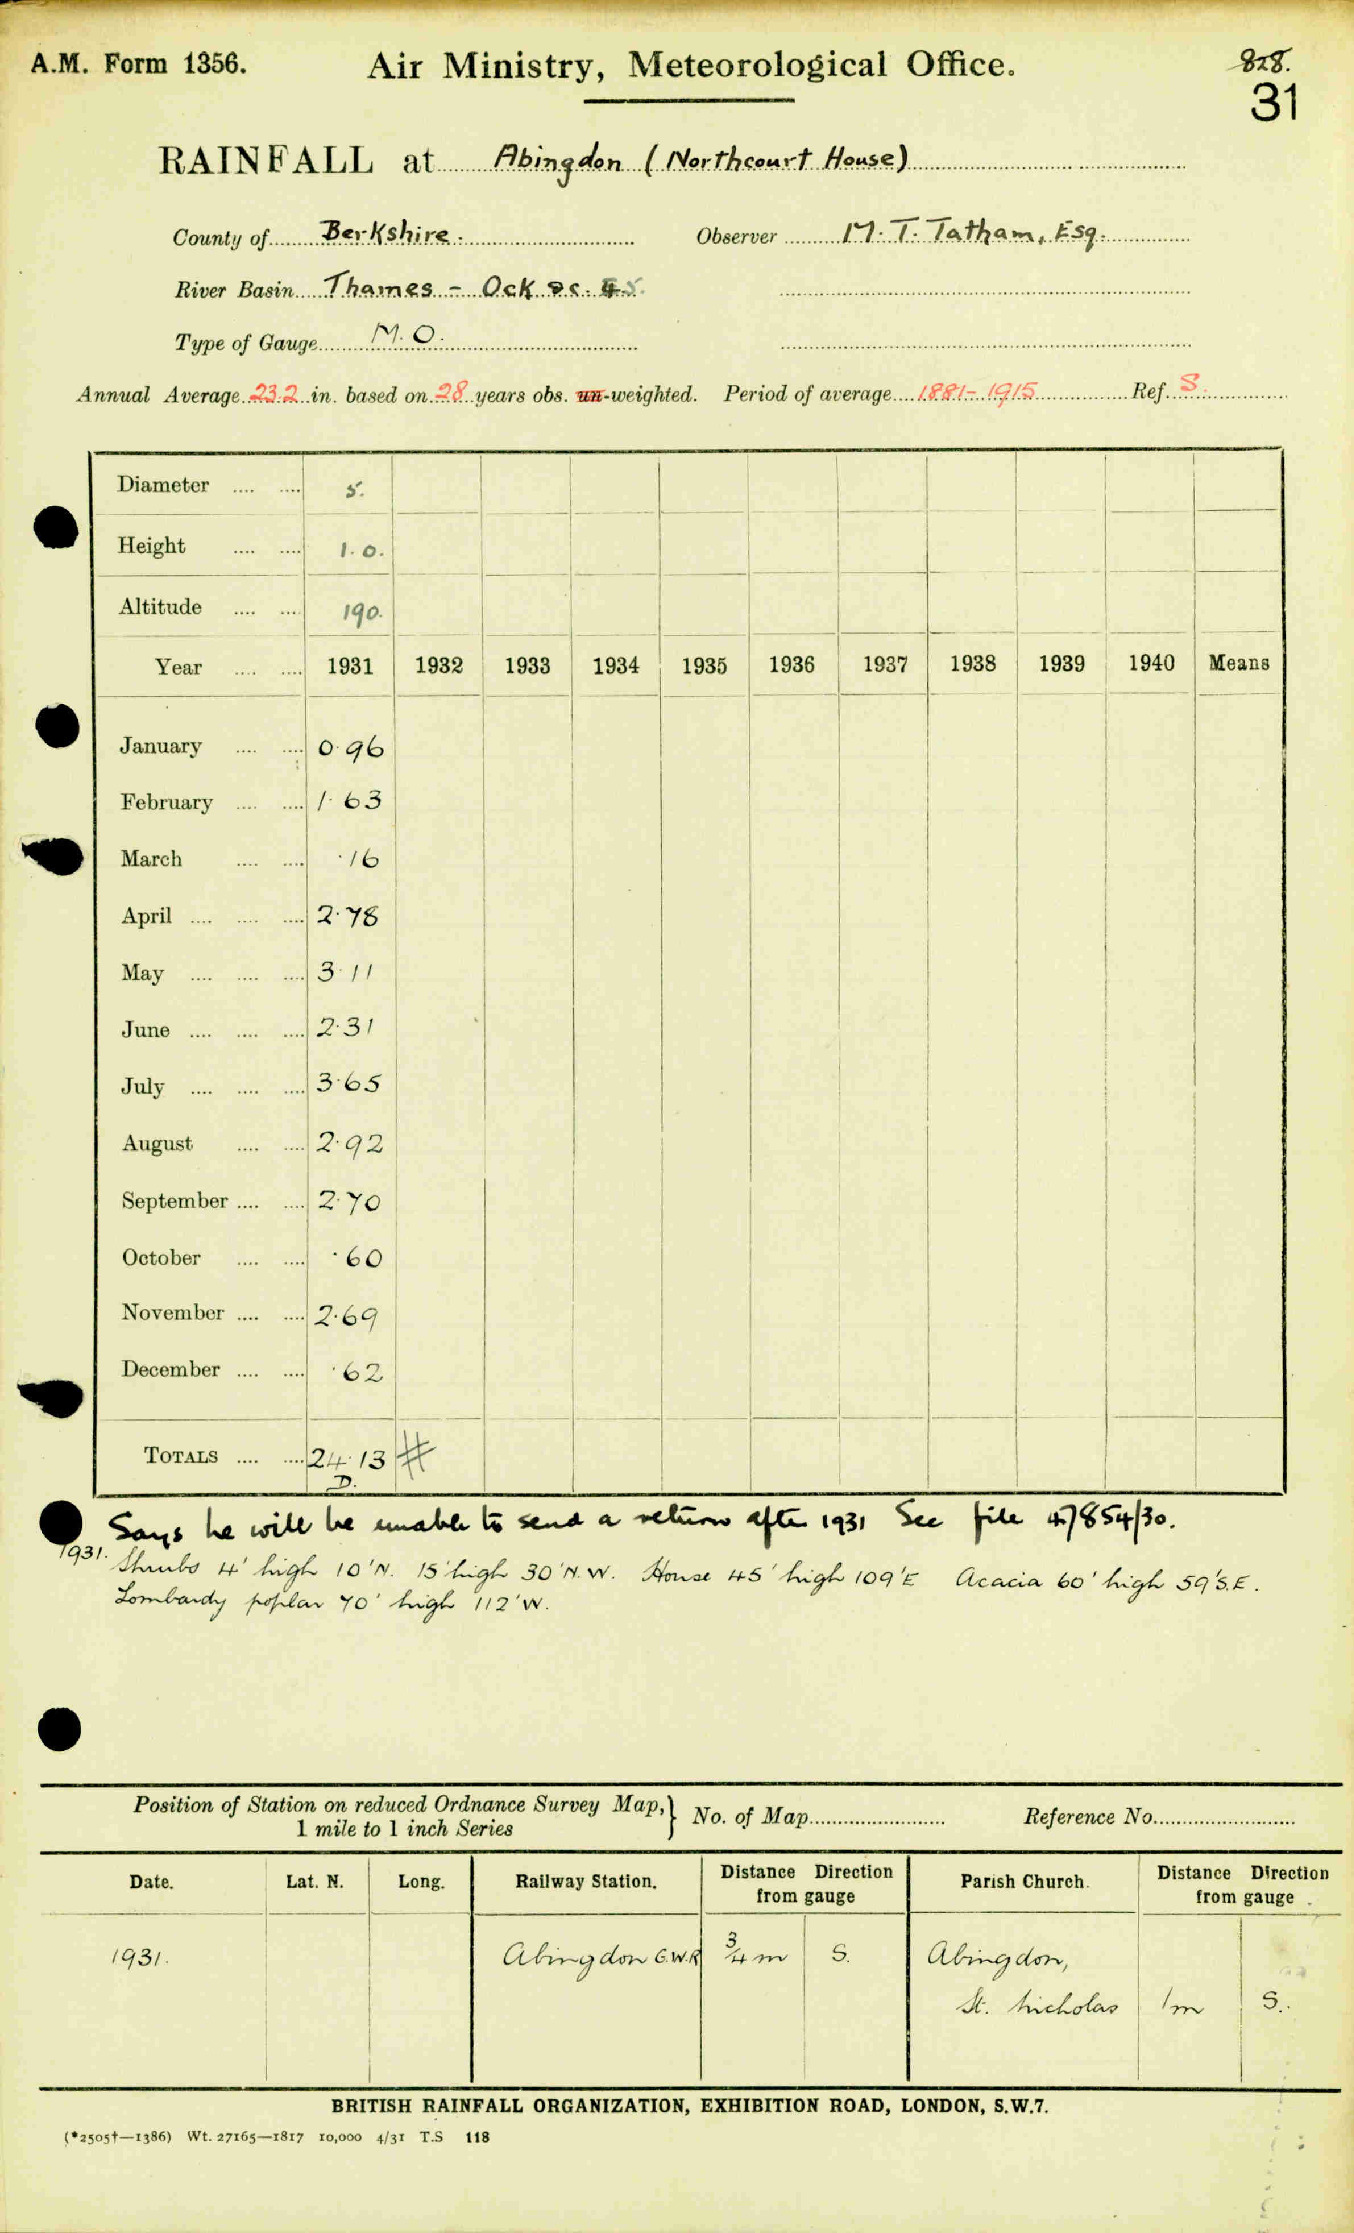 A.M. Form 1356.
Air Ministry, Meteorological Office.
828.
31
RAINFALL at Abingdon (Northcourt House)
County of Berkshire. Observer M. T. Tatham, Esq.
River Basin Thames - Ock
Type of Gauge M.O.
Annual Average 23.2 in. based on 28 years obs. un-weighted. Period of average 1881-1915 Ref. S.
Diameter .... .... 5.
Height .... .... 1.0.
Altitude .... .... 190.
Year .... .... 1931 1932 1933 1934 1935 1936 1937 1938 1939 1940 Means
January .... .... 0.96
February .... .... 1.63
March .... .... .16
April .... .... .... 2.78
May .... .... .... 3.11
June .... .... .... 2.31
July .... .... .... 3.65
August .... .... 2.92
September .... .... 2.70
October .... .... .60
November .... .... 2.69
December .... .... .62
TOTALS .... .... 24.13 #
D.
Says he will be unable to send a return after 1931 See file 47854/30.
1931. Shrubs 4' high 10'N. 15' high 30'N.W. House 45' high 109'E Acacia 60' high 59'S.E.
Lombardy poplar 70' high 112'W.
Position of Station on reduced Ordnance Survey Map,
1 mile to 1 inch Series
No. of Map Reference No.
Date. Lat. N. Long. Railway Station. Distance Direction from gauge Parish Church. Distance Direction from gauge
1931. Abingdon G.W.R 3/4 m S. Abingdon,
St. Nicholas 1m S.
BRITISH RAINFALL ORGANIZATION, EXHIBITION ROAD, LONDON, S.W.7.
(*2505†—1386) Wt. 27165—1817 10,000 4/31 T.S 118